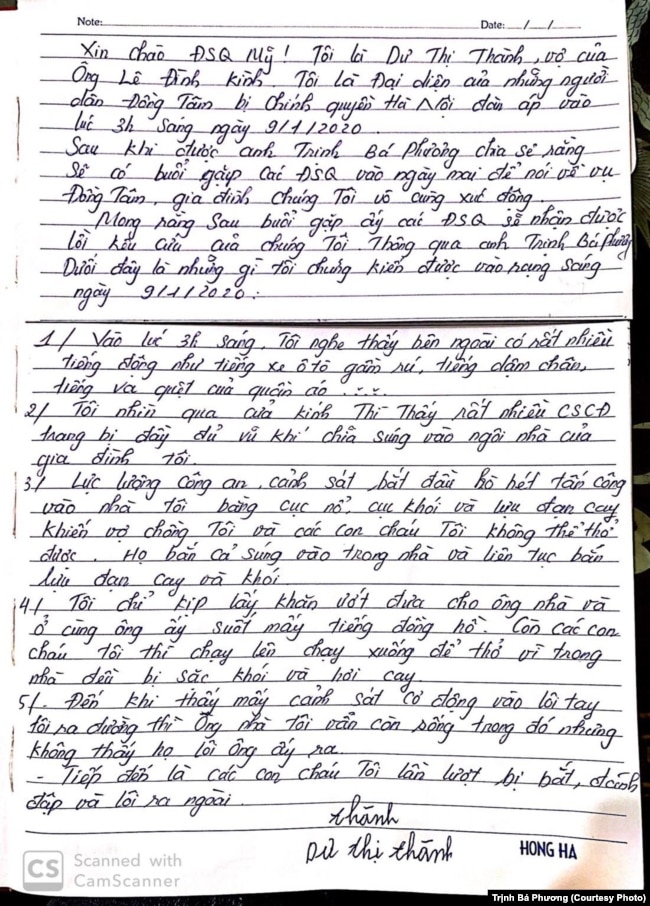 Note: Date: / /
Xin chào ĐSQ Mỹ! Tôi là Dư Thị Thành, vợ của
Ông Lê Đình Kình. Tôi là Đại diện của những người
dân Đồng Tâm bị Chính quyền Hà Nội đàn áp vào
lúc 3h sáng ngày 9/1/2020.
Sau khi được anh Trịnh Bá Phương chia sẻ rằng
Sẽ có buổi gặp các ĐSQ vào ngày mai để nói về vụ
Đồng Tâm, gia đình chúng Tôi vô cùng xúc động.
Mong rằng Sau buổi gặp ấy các ĐSQ sẽ nhận được
lời kêu cứu của chúng Tôi Thông qua anh Trịnh Bá Phương
Dưới đây là những gì tôi chứng kiến được vào rạng sáng
ngày 9/1/2020:
1/ Vào lúc 3h sáng, Tôi nghe thấy bên ngoài có rất nhiều
tiếng động như tiếng xe ô tô gầm rú, tiếng dậm chân,
tiếng va quệt của quần áo .....
2/ Tôi nhìn qua cửa kính Thì Thấy rất nhiều CSCĐ
trang bị đầy đủ vũ khí chĩa súng vào ngôi nhà của
gia đình Tôi.
3/ Lực lượng công an, cảnh sát bắt đầu hò hét tấn công
vào nhà Tôi bằng cục nổ, cục khói và lựu đạn cay
khiến vợ chồng Tôi và các con cháu Tôi không thể thở
được. Họ bắn cả súng vào trong nhà và liên tục bắn
lựu đạn cay và khói
4/ Tôi chỉ kịp lấy khăn ướt đưa cho ông nhà và
ở cùng ông ấy suốt mấy tiếng đồng hồ. Còn các con
cháu tôi thì chạy lên chạy xuống để thở vì trong
nhà đều bị sặc khói và hơi cay.
5/. Đến khi thấy mấy cảnh sát cơ động vào lôi tay
tôi ra đường thì Ông nhà tôi vẫn còn sống trong đó nhưng
không thấy họ lôi ông ấy ra.
- Tiếp đến là các con cháu Tôi lần lượt bị bắt, đánh
đập và lôi ra ngoài.
thành
Dư thị thành
HONG HA
CS Scanned with
CamScanner
Trịnh Bá Phương (Courtesy Photo)